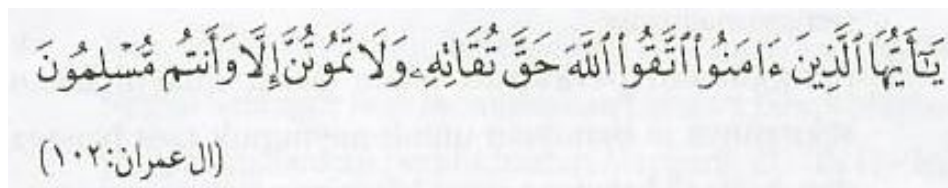 يَٰٓأَيُّهَا ٱلَّذِينَ ءَامَنُوا۟ ٱتَّقُوا۟ ٱللَّهَ حَقَّ تُقَاتِهِۦ وَلَا تَمُوتُنَّ إِلَّا وَأَنتُم مُّسْلِمُونَ
(ال عمران: ١٠٢)